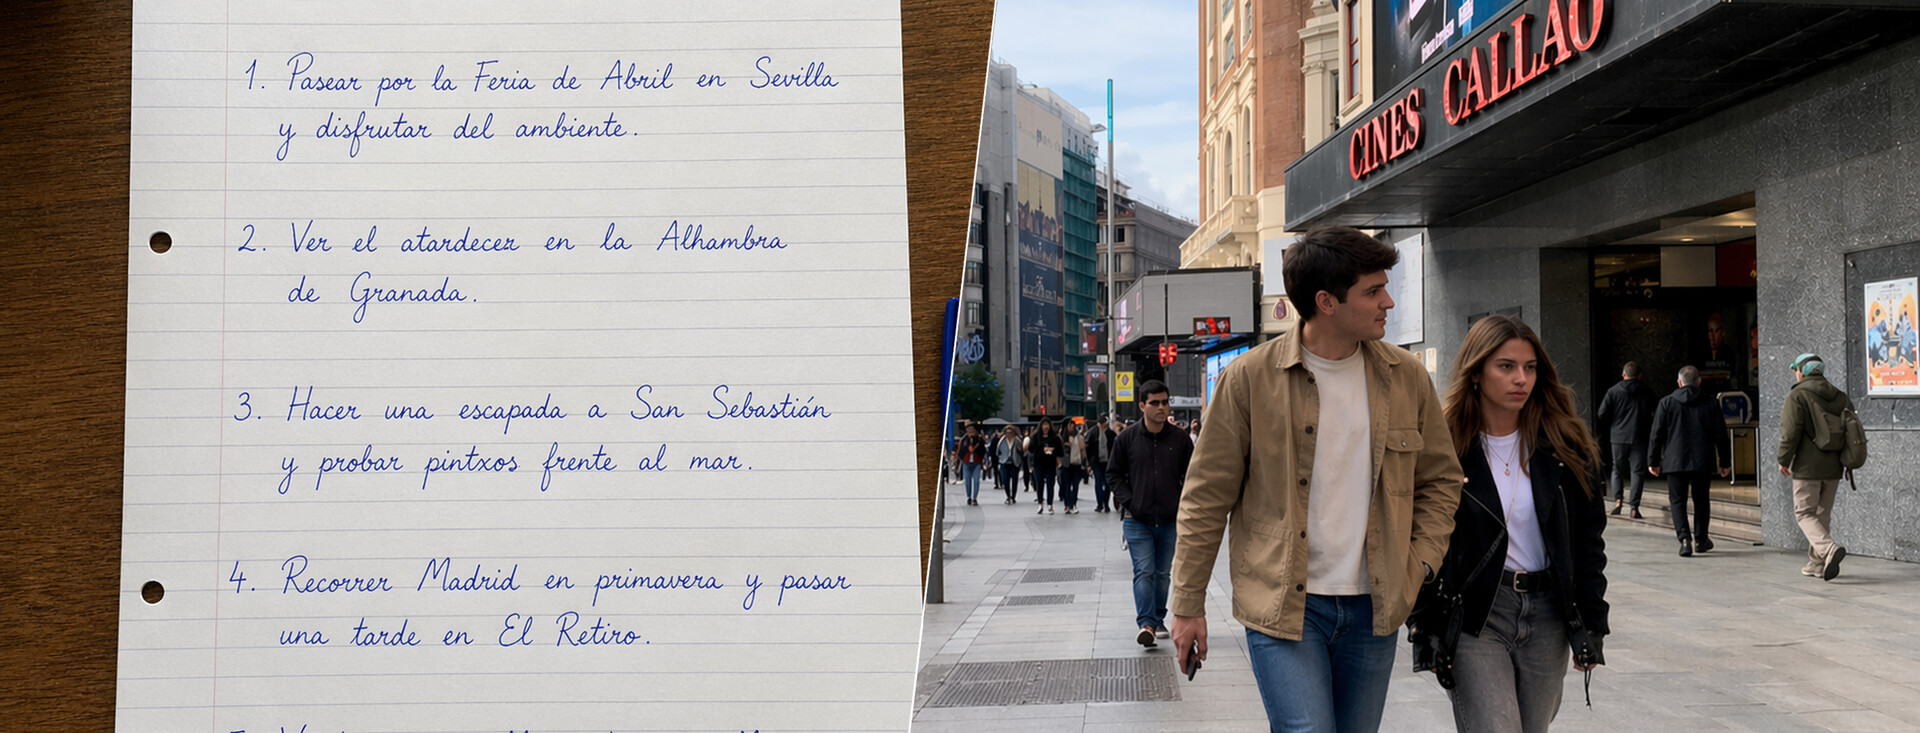 1. Pasear por la Feria de Abril en Sevilla
y disfrutar del ambiente.
2. Ver el atardecer en la Alhambra
de Granada.
3. Hacer una escapada a San Sebastián
y probar pintxos frente al mar.
4. Recorrer Madrid en primavera y pasar
una tarde en El Retiro.
CINES CALLAO